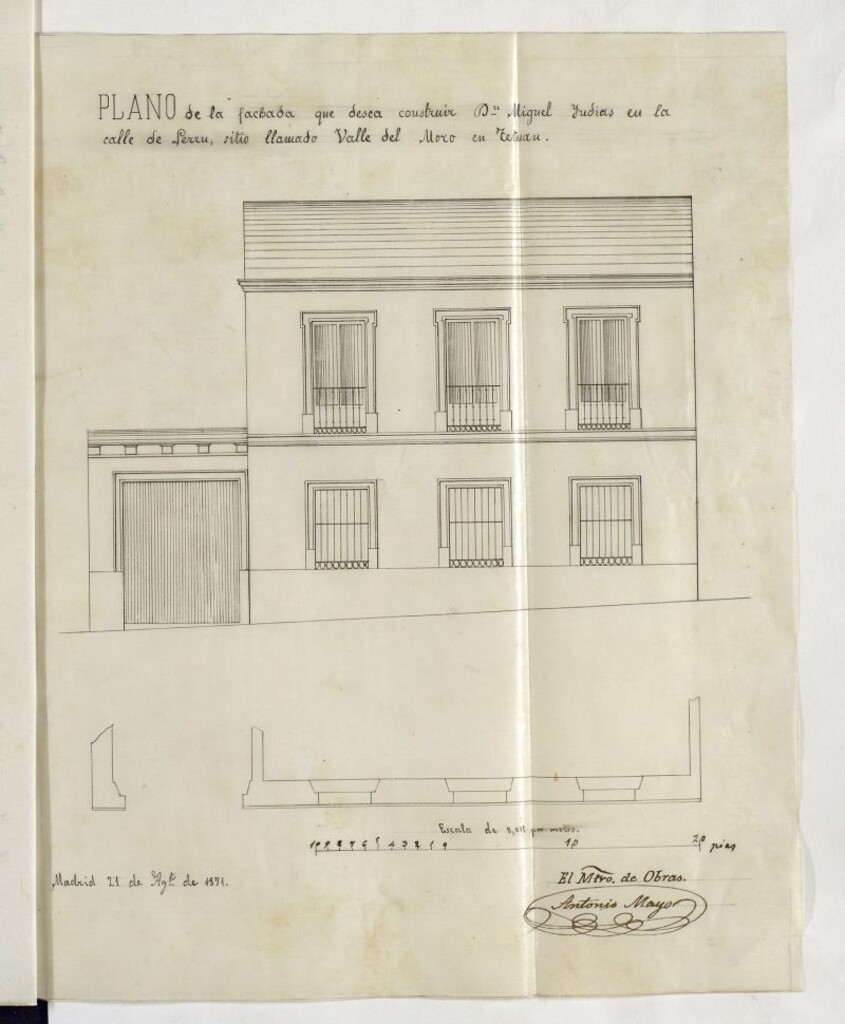 PLANO de la fachada que desea construir Dn. Miguel Yudias en la
calle de Perru, sitio llamado Valle del Moro en Tetuan.
Escala de 0,015 por metro.
10 9 8 7 6 5 4 3 2 1 0 10 20 pies
Madrid 21 de Agto. de 1871.
El Mtro. de Obras.
Antonio Mayo